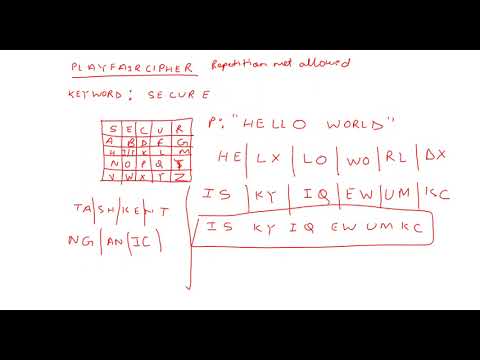 PLAYFAIRCIPHER Repetition not allowed
KEYWORD: SECURE
P: "HELLO WORLD"
S E C U R
A B D F G
H I/J K L M
N O P Q T
V W X Y Z
HE | LX | LO | WO | RL | DX
IS | KY | IQ | EW | UM | KC
IS KY IQ EW UM KC
TA/SH/KE/NT
NG/AN/IC